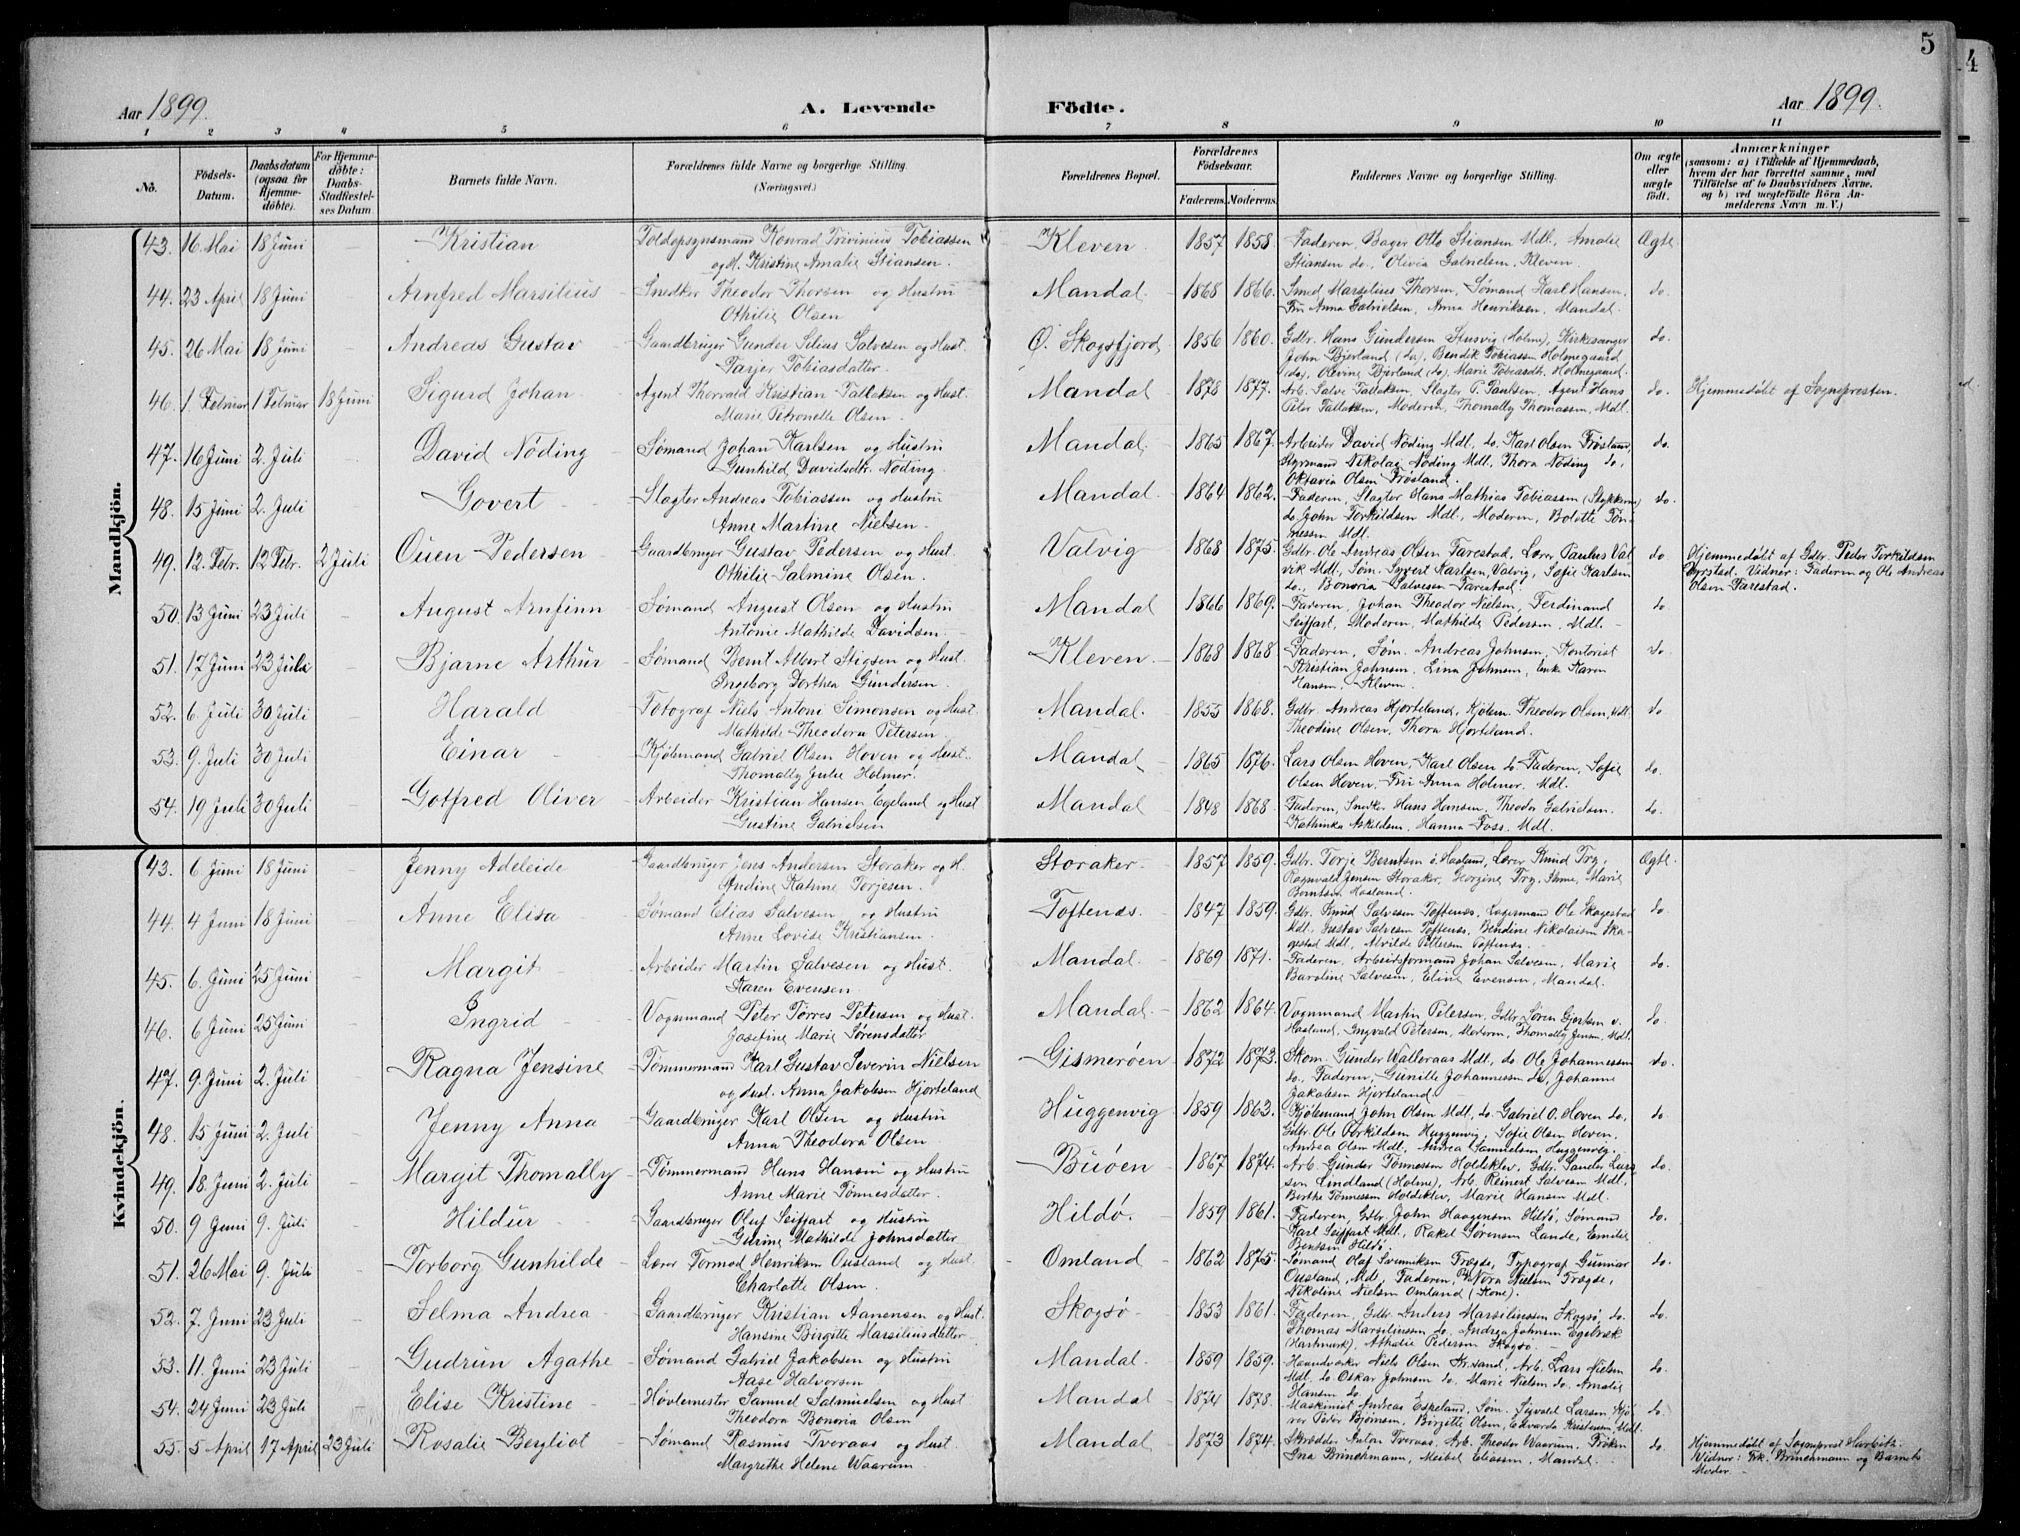 5
4
Aar 1899.
A. Levende Fødte.
Aar 1899.
1 2 3 4 5 6 7 8 9 10 11
No.
Fødsels-Datum.
Daabsdatum (ogsaa for Hjemmedøbte).
For Hjemmedøbte: Daabs-Stadfæstelses Datum
Barnets fulde Navn.
Forældrenes fulde Navne og borgerlige Stilling.
(Næringsvei.)
Forældrenes Bopæl.
Forældrenes Fødselsaar.
Faderens. Moderens.
Faddernes Navne og borgerlige Stilling.
Om ægte eller uægte født.
Anmærkninger
(saasom: a) i Tilfælde af Hjemmedaab, hvem der har forrettet samme, med Tilføielse af to Daabsvidners Navne, og b) ved uægtefødte Börn Anmelderens Navn m. V.)
Mandkjön.
43. 16 Mai 18 Juni - Kristian Toldopsynsmand Konrad Trivinius Tobiassen og H. Kristine Amalie Stiansen. Kleven. 1857 1858. Faderen, Bager Otto Stiansen Mdl., Amalie Stiansen do., Olivia Gabrielsen, Kleven. Ægte.
44. 23 April 18 Juni - Arnfred Marsilius Snedker Theodor Thorsen og Hustru Othilie Olsen Mandal. 1868 1866. Smed Marselius Thorsen, Sømand Karl Hansen, Fru Anna Gabrielsen, Anna Henriksen, Mandal. do.
45. 26 Mai 18 Juni - Andreas Gustav Gaardbruger Gunder Selius Salvesen og Hust. Tarjer Tobiasdatter. Ø. Skogsfjord 1856 1860. Gdbr. Hans Gundersen Stusvig (Holme), Kirkesanger John Bjerland (do), Bendik Tobiassen Holmegaard (do), Olevine Bjerland (do), Marie Tobiasdt. Holmegaard. do.
46. 1 Februar 1 Februar 18 Juni Sigurd Johan Agent Thorvald Kristian Tallaksen og Hust. Marie Petronelle Olsen. Mandal 1878 1877. Arb. Salve Tallaksen, Slagter P. Paulsen, Agent Hans Peter Tallaksen, Moderen, Thomally Thomassen, Mdl. do Hjemmedøbt af Sognepresten.
47. 16 Juni 2. Juli - David Nöding Sømand Johan Karlsen og Hustru Gunhild Davidsdtr. Nöding. Mandal. 1865 1867. Arbeider David Nöding Mdl, do. Karl Olsen Frøsland, Styrmand Nikolai Nöding Mdl., Thora Nöding do, Oktavia Olsen Frøsland. do.
48. 15 Juni 2. Juli - Govert Slagter Andreas Tobiassen og Hustru Anne Martine Nielsen. Mandal. 1864 1862. Faderen, Slagter Hans Mathias Tobiassen do. John Torkildsen Mdl., Moderen, Bolette Tönnessen Mdl. do.
49. 12. Febr. 12 Febr. 2 Juli Ouen Pedersen Gaardbruger Gustav Pedersen og Hust. Othilie Salmine Olsen. Valvig 1868 1875. Gdbr. Ole Andreas Olsen Farestad, Lærer Paulus Valvik Mdl., Søm. Syvert Karlsen, Valvig, Sofie Karlsen do., Bonoria Salvesen Farestad. do Hjemmedøbt af Gdbr. Peder Torkildsen. Vidner: Faderen og Ole Andreas Olsen Farestad.
50. 13 Juni 23 Juli - August Arnfinn Sømand August Olsen og Hustru Antonie Mathilde Davidsen. Mandal 1866 1869. Faderen, Johan Theodor Nielsen, Ferdinand Seiffart, Moderen, Mathilde Pedersen, Mdl. do
51. 17 Juni 23 Juli - Bjarne Arthur Sømand Bernt Albert Stigsen og Hust. Ingeborg Dorthea Gundersen. Kleven. 1868 1868 Faderen, Søm. Andreas Johnsen, Kontorist Kristian Johnsen, Lina Johnsen, Enke Karen Hansen, Kleven. do.
52. 6. Juli 30 Juli - Harald Fotograf Niels Antoni Simonsen og Hust. Mathilde Theodora Petersen Mandal. 1855 1868. Gdbr. Andreas Hjorteland, Kjøbm. Theodor Olsen, Mdl. Theodine Olsen, Thora Hjorteland. do
53. 9. Juli 30 Juli - Einar Kjøbmand Gabriel Olsen Hoven og Hust. Thomally Julie Holmer. Mandal 1865 1876. Lars Olsen Hoven, Karl Olsen do. Faderen, Sofie Olsen Hoven, Fru Anna Holmer. Mdl. do.
54. 19 Juli 30 Juli - Gotfred Oliver Arbeider Kristian Hansen Egeland og Hust Gustine Gabrielsen Mandal 1848 1868. Faderen, Snedker Hans Hansen, Theodor Gabrielsen. Kathinka Askildsen, Hanna Foss. Mdl. do.
Kvindekjön.
43. 6 Juni 18 Juni - Jenny Adeleide Gaardbruger Jens Andersen Storaker og H. Andine Katrine Torjesen. Storaker. 1857 1859. Gdbr. Torje Berntsen i Hasland, Lærer Knud Try, Ragnvald Jensen Storaker, Georgine Try, Marie Berntsen Hasland. Ægte.
44. 4 Juni 18 Juni - Anne Elisa Sømand Elias Salvesen og Hustru Anne Lovise Kristiansen. Toftenæs. 1847 1859. Gdbr. Knud Salvesen Toftenæs, Lagermand Ole Skagestad Mdl., Gustav Salvesen Toftenæs, Bendine Nikolaisen Skagestad Mdl, Alvilde Pettersen Toftenæs. do.
45. 6. Juni 25 Juni - Margit Arbeider Martin Salvesen og Hust. Karen Evensen. Mandal. 1869 1871. Faderen, Arbeidsformand Johan Salvesen, Marie Baroline Salvesen, Eline Evensen, Mandal. do.
46. 6 Juni 25 Juni - Ingrid Vognmand Peter Törres Petersen og Hust. Josefine Marie Sørensdatter Mandal. 1862 1864. Vognmand Martin Petersen, Gdbr. Søren Gjertsen v. Hasland, Ingvald Petersen, Moderen, Thomally Jensen, Mdl. do.
47. 9. Juni 2. Juli - Ragna Jensine Tømmermand Karl Gustav Severin Nielsen og Hust. Anna Jakobsen Hjorteland Gismerøen 1872 1873. Skom. Gunder Walleraas Mdl., do Ole Johannessen do., Faderen, Gunille Johannessen do, Johanne Jakobsen Hjorteland. do.
48. 15 Juni 2. Juli - Jenny Anna Gaardbruger Karl Olsen og Hustru Anna Theodora Olsen. Huggenvig 1859 1863. Kjøbmand John Olsen Mdl, do. Gabriel O. Hoven do, Gdbr. Ole Torkildsen Huggenvig, Sofie Olsen Hoven, Andrea Olsen Mdl., Andrea Samuelsen Huggenvig. do.
49. 18. Juni 2. Juli - Margit Thomally Tømmermand Hans Hansen og Hustru Anne Marie Tönnesdatter. Buøen 1867 1874. Arb. Gunder Tönnesen Holdeklev, Gdbr. Sander Larssen Lindland (Holme), Arb. Reinert Salvesen Mdl, Berthe Tönnessen Holdeklev, Marie Hansen Mdl. do.
50. 9 Juni 9. Juli - Hildur Gaardbruger Oluf Seiffart og Hustru Gurine Mathilde Johnsdatter Hildø. 1859 1861. Faderen, Gdbr. John Haagensen Hildø, Sømand Karl Seiffart Mdl., Rakel Sørensen Lande, Emilie Bentsen Hildø. do.
51. 26 Mai 9. Juli - Torborg Gunhilde Lærer Tormod Henriksen Ousland og Hust. Charlotte Olsen. Omland 1862 1875. Sømand Olaf Svenniksen Trægde, Typograf Gunnar Ousland, Mdl, Faderen, Nora Nielsen Trægde, Nikoline Nielsen Omland (Kone). do.
52. 7. Juni 23 Juli - Selma Andrea Gaardbruger Kristian Aanensen og Hust. Hansine Birgitte Marsiliusdatter. Skogsø 1853 1861. Faderen, Gdbr. Anders Marsiliussen Skogsø, do. Thomas Marsiliussen do. Andrea Johnsen Egebræk (Hartmark), Athalie Pedersen Skogsø. do.
53. 11. Juni 23 Juli - Gudrun Agathe Sømand Gabriel Jakobsen og Hustru Aase Halvorsen Mandal. 1859 1859. Haandverker Niels Olsen Kr.sand, Arb. Lars Nielsen Mdl. do Oskar Johnsen do. Marie Nielsen do. Amalie Hansen do. do.
54. 24 Juni 23 Juli - Elise Kristine Høvlemester Samuel Salmuelsen og Hust Theodora Bonoria Olsen Mandal 1874 1878. Maskinist Andreas Espeland, Søm. Sigvald Larsen, Peter Bjørnsen, Birgitte Olsen, Edvarda Kristensen Mdl. do.
55. 5 April 17 April 23 Juli Rosalie Bergliot Sømand Rasmus Tveraas og Hust. Margrethe Helene Waarum. Mandal 1873 1874. Skrædder Anton Tveraas, Arb. Theodor Waarum, Frøken Ina Brinchmann, Meibel Eliassen, Mandal. do. Hjemmedøbt af Sogneprest Harbitz. Vidner: Frk. Brinchmann og Barnets Moder.